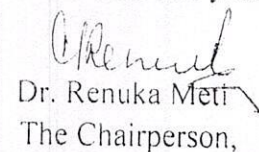 Dr. Renuka Meti
The Chairperson,